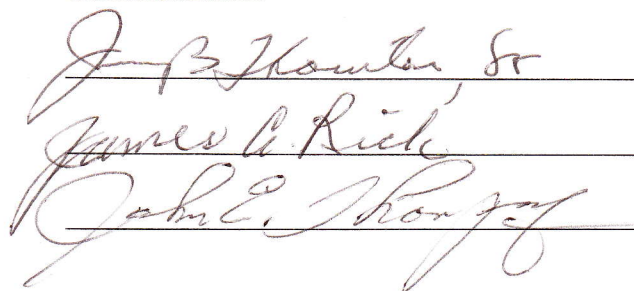 Jim B. Thornton, Sr
James A. Rick
John E. Thompson